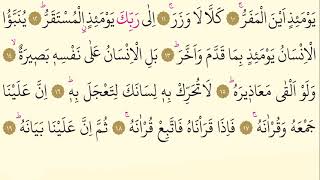 يَوْمَئِذٍ اَيْنَ الْمَفَرُّ ۚ ﴿١٠﴾ كَلَّا لَا وَزَرَ ۚ ﴿١١﴾ اِلٰى رَبِّكَ يَوْمَئِذِ ۨالْمُسْتَقَرُّ ۗ ﴿١٢﴾ يُنَبَّؤُا
الْاِنْسَانُ يَوْمَئِذٍ بِمَا قَدَّمَ وَاَخَّرَ ۗ ﴿١٣﴾ بَلِ الْاِنْسَانُ عَلٰى نَفْسِهٖ بَصِيْرَةٌ ۙ ﴿١٤﴾
وَّلَوْ اَلْقٰى مَعَاذِيْرَهٗ ۗ ﴿١٥﴾ لَا تُحَرِّكْ بِهٖ لِسَانَكَ لِتَعْجَلَ بِهٖ ۗ ﴿١٦﴾ اِنَّ عَلَيْنَا
جَمْعَهٗ وَقُرْاٰنَهٗ ۚ ﴿١٧﴾ فَاِذَا قَرَاْنٰهُ فَاتَّبِعْ قُرْاٰنَهٗ ۚ ﴿١٨﴾ ثُمَّ اِنَّ عَلَيْنَا بَيَانَهٗ ۗ ﴿١٩﴾